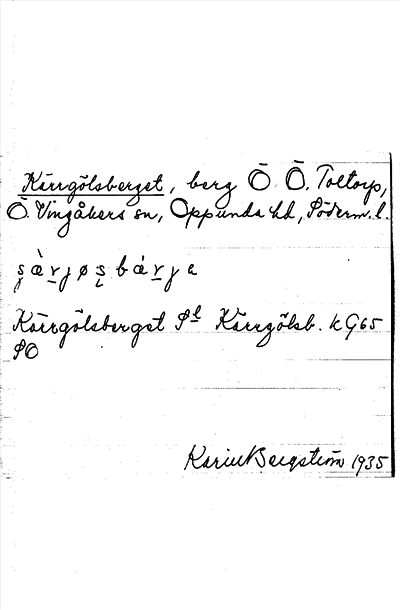 Kärrgölsberget, berg Ō Ō. Toltorp,
Ō. Vingåkers sn, Oppunda hd, Söderm. l.
Kärrgölsberget Kärrgölsb. k G65
SO
Karin Bergström 1935